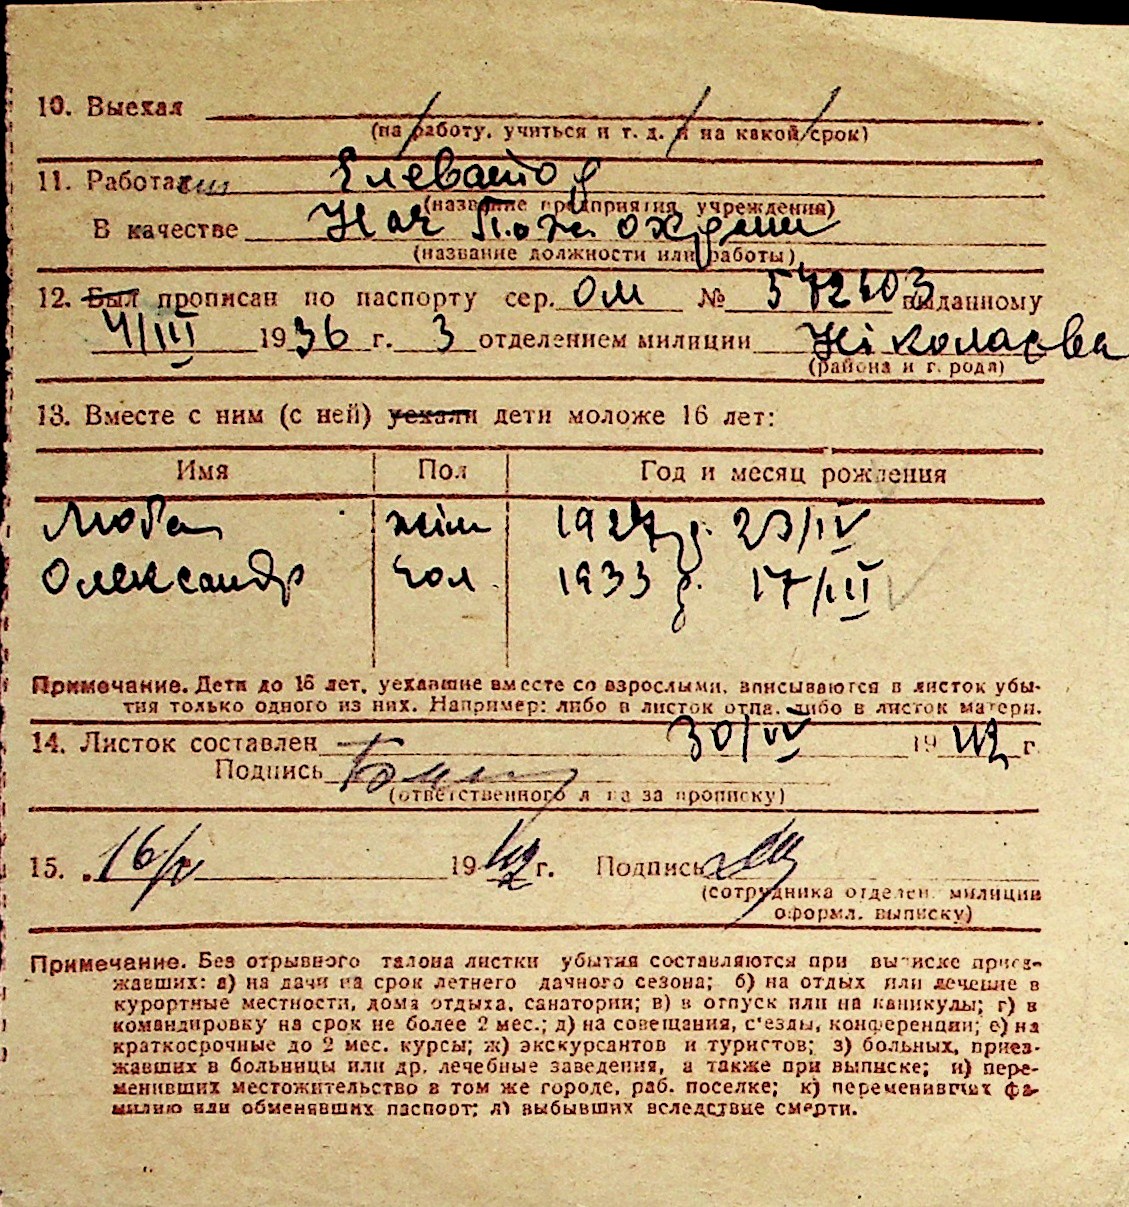 10. Выехал
(на работу, учиться и т. д. и на какой срок)
11. Работает Елеватор
(название предприятия, учреждения)
В качестве Нач Пож охрани
(название должности или работы)
12. Был прописан по паспорту сер. ОМ № 572403 выданному
4/III 1936 г. 3 отделением милиции Ніколаева
(района и города)
13. Вместе с ним (с ней) уехали дети моложе 16 лет:
Имя Пол Год и месяц рождения
Люба жін 1927 р. 23/IV
Олександр чол. 1933 р. 17/III
Примечание. Дети до 16 лет, уехавшие вместе со взрослыми, вписываются в листок убы-
тия только одного из них. Например: либо в листок отца, либо в листок матери.
14. Листок составлен 30/IV 1942 г.
Подпись
(ответственного лица за прописку)
15. 16/V 1942 г. Подпись
(сотрудника отделен. милиции
оформл. выписку)
Примечание. Без отрывного талона листки убытия составляются при выписке приез-
жавших: а) на дачи на срок летнего дачного сезона; б) на отдых или лечение в
курортные местности, дома отдыха, санатории; в) в отпуск или на каникулы; г) в
командировку на срок не более 2 мес.; д) на совещания, с'езды, конференции; е) на
краткосрочные до 2 мес. курсы; ж) экскурсантов и туристов; з) больных, приез-
жавших в больницы или др. лечебные заведения, а также при выписке; и) пере-
менивших местожительство в том же городе, раб. поселке; к) переменивших фа-
милию или обменявших паспорт; л) выбывших вследствие смерти.